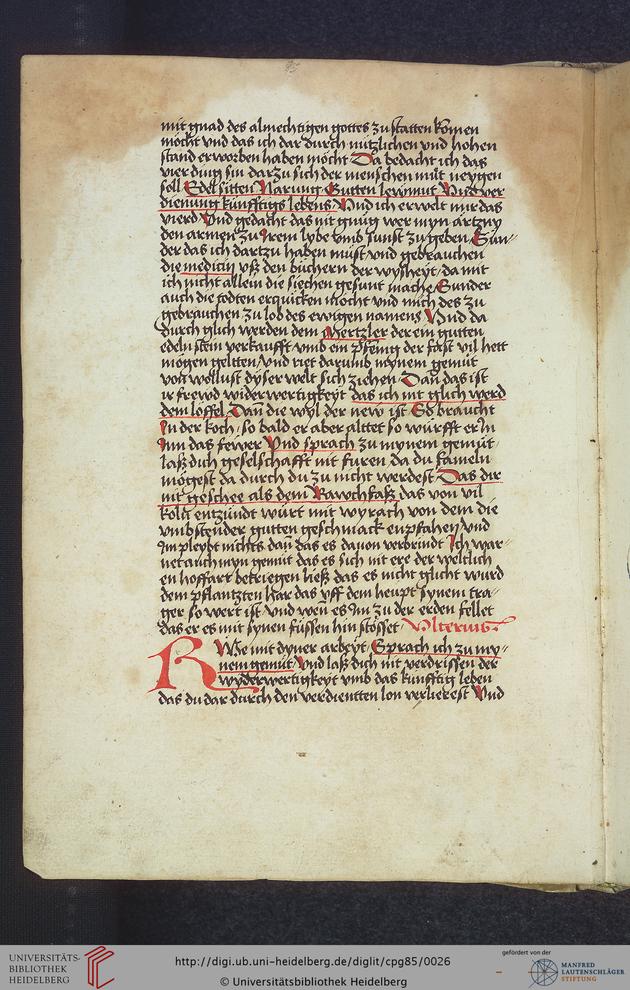 mit gnad des almechtigen gottes zu statten komen
möcht vnd das ich dar durch nützlichen vnd hohen
stand erworben haben möcht Da bedacht ich das
vier ding sin dar zu sich der menschen milt neygen
soll Edel sitten Narung Gutten lewmut Vnd ver
dienung künfftigs lebens Vnd ich erwelt mir das
vierd Vnd gedacht das nit gnug wer myn artzny
den armen zu Irem lybe vmb sunst zu geben Sun
der das ich dartzu haben must vnd gebrauchen
die medicin vß den büchern der wysheyt da mit
ich nicht allein die siechen gesunt mache Sunder
auch die todten erquicken möcht vnd mich des zu
gebrauchen zu lob des ewigen namens Vnd da
durch glich werden dem Mertzler der ein gutten
edeln stein verkaufft vmb ein pfenig der fast vil hett
mögen geltten / vnd riet darumb mynem gemüt
von wollust dyser welt sich ziehen Dan das ist
ir frewd widerwertigkeyt das ich nit glich werd
dem löffel Dan die wyl der new ist So braucht
In der koch / so bald er aber alttet so würfft er In
Inn das fewer Vnd sprach zu mynem gemüt
laß dich geselschafft nit füren da du sameln
mögest da durch du zu nicht werdest Das dir
nit geschee als dem Rawchfaß das von vil
koln entzündt würt mit wyrach von dem die
vmbstender gutten geschmack enpfahen / vnd
Im pleybt nichts dan das es dauon verbrindt Ich war
net auch myn gemüt das es sich nit ere der weltlich
en hoffart betriegen ließ das es nicht glicht wurd
dem pflantzten har das vff dem heupt synem tra
ger so wert ist vnd wen es Im zu der erden fellet
das er es mit synen füssen hin stösset Vlterius
RWe mit dyner arbeyt Sprach ich zu my
nem gemüt Vnd laß dich nit verdrissen der
wyderwertigkeyt vmb das künfftig leben
das du dar durch den verdientten lon verlierest Vnd
UNIVERSITÄTS-
BIBLIOTHEK
HEIDELBERG
http://digi.ub.uni-heidelberg.de/diglit/cpg85/0026
© Universitätsbibliothek Heidelberg
gefördert von der
MANFRED
LAUTENSCHLÄGER
STIFTUNG